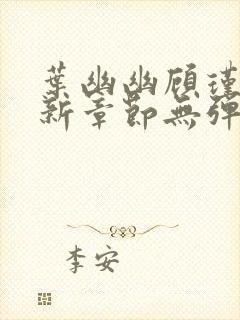 葉幽幽顾瑾
新章節無彈
李安